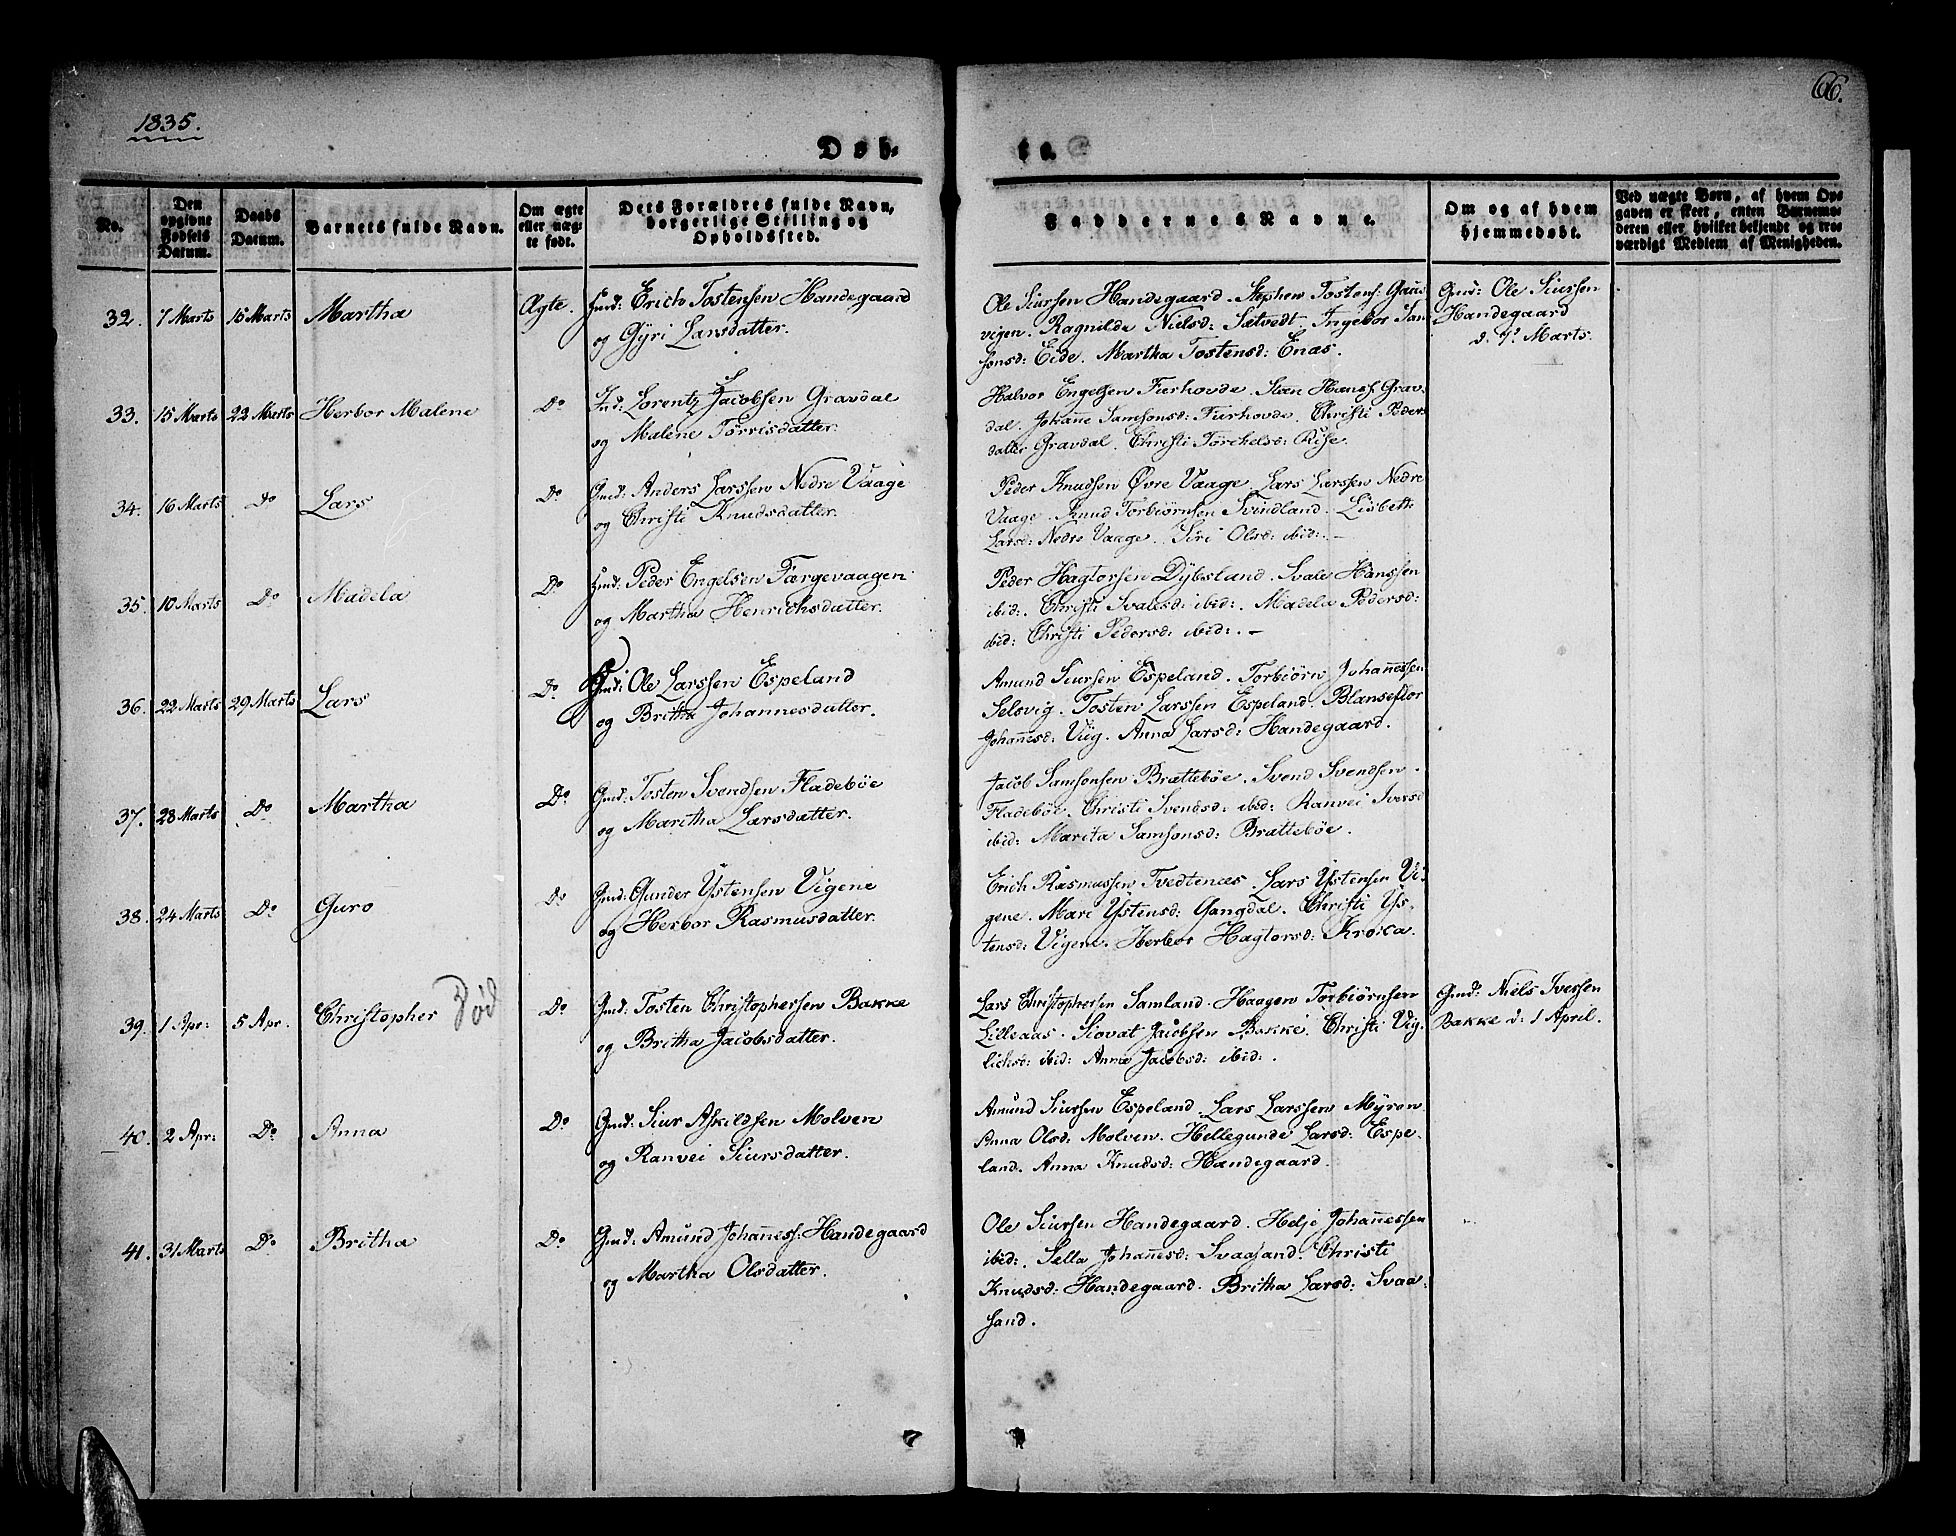 1835.
66.
Døb-
te.
No.
Den opgivne Fødsels Datum.
Daabs Datum.
Barnets fulde Navn.
Om ægte eller uægte født.
Dets Forældres fulde Navn, borgerlige Stilling og Opholdssted.
Faddernes Navne.
Om og af hvem hjemmedøbt.
Ved uægte Børn, af hvem Opgaven er skeet, enten Barnemoderen eller hvilket bekjende og troværdigt Medlem af Menigheden.
32. 7 Marts 15 Marts Martha Ægte. Gmd: Erich Tostensen Handegaard
og Gÿri Larsdatter.
Ole Siursen Handegaard. Stephen Tostens: Gaus
vigen. Ragnilda Nielsd: Sætvedt. Ingebor Sam
sonsd: Eide. Martha Tostensd: Enæs.
Gmd: Ole Siursen
Handegaard
d. 7. Marts.
33. 15 Marts 22 Marts Herbor Malene Do Ind: Lorentz Jacobsen Gravdal
og Malene Torrisdatter.
Halvor Engelsen Furhovde. Sven Hanss: Grav-
dal. Johanne Samsonsd: Furhovde. Christi Peders
datter Gravdal. Christi Torchelsd: Riise.
34. 16 Marts Do Lars Do Gmd: Anders Larssen Nedre Vaage
og Christi Knudsdatter.
Peder Knudsen Øvre Vaage. Lars Larssen Nedre
Vaage. Knud Torbiörnsen Svindland. Lisbeth
Larsd: Nedre Vaage. Siri Olsd: ibid:.—
35. 10 Marts Do Madela Do Gmd: Peder Engelsen Færgevaagen
og Martha Henrichsdatter.
Peder Hagtorsen Dÿbsland. Svale Hanssen
ibid:. Christi Svalesd: ibid:. Madela Pedersd:
ibid: Christi Pedersd: ibid:.—
36. 22 Marts 29 Marts Lars Do. Gmd: Ole Larssen Espeland
og Britha Johannesdatter.
Amund Siursen Espeland. Torbiörn Johannessen
Selsvig. Tosten Larssen Espeland. Blanseflor
Johannesd: Viig. Anna Larsd: Handegaard.
37. 23 Marts Do Martha Do. Gmd: Tosten Svendsen Fladebøe
og Maritha Larsdatter.
Jacob Samsonsen Brættebøe. Svend Svendsen
Fladebøe. Christi Svendsd: ibid: Ranvei Iversd
ibid: Marita Samsonsd: Brættebøe.
38. 24 Marts Do Guro Do Gmd: Gunder Ystensen Vigene
og Herbor Rasmusdatter.
Erich Rasmussen Tvedtenæs. Lars Ystensen Vi-
gene. Mari Ystensd: Gangdal. Christi Ys-
tensd: Vigene. Herbor Hagtorsd:
39. 1 Apr: 5 Apr. Christopher Død Do Gmd: Tosten Christophersen Bakke
og Britha Jacobsdatter.
Lars Christophersen Samland. Haagen Torbiörnsen
Lilleaas. Siovat Jacobsen Bakke. Christi Vig-
lichsd: ibid: Anna Jacobsd: ibid:.
Gmd: Niels Iversen
Bakke d: 1 April.
40. 2 Apr: Do Anna Do. Gmd: Siur Askildsen Molven
og Ranvei Siursdatter.
Amund Siursen Espeland. Lars Larssen Mÿren
Anna Olsd: Molven. Hellegunde Larsd: Espe-
land. Anna Knudsd: Handegaard.
41. 31 Marts Do Britha Do. Gmd: Amund Johanness: Handegaard
og Martha Olsdatter.
Ole Siursen Handegaard. Helje Johannessen
ibid:. Sella Johannesd: Svaasand. Christi
Knudsd: Handegaard. Britha Larsd: Svaa-
sand.